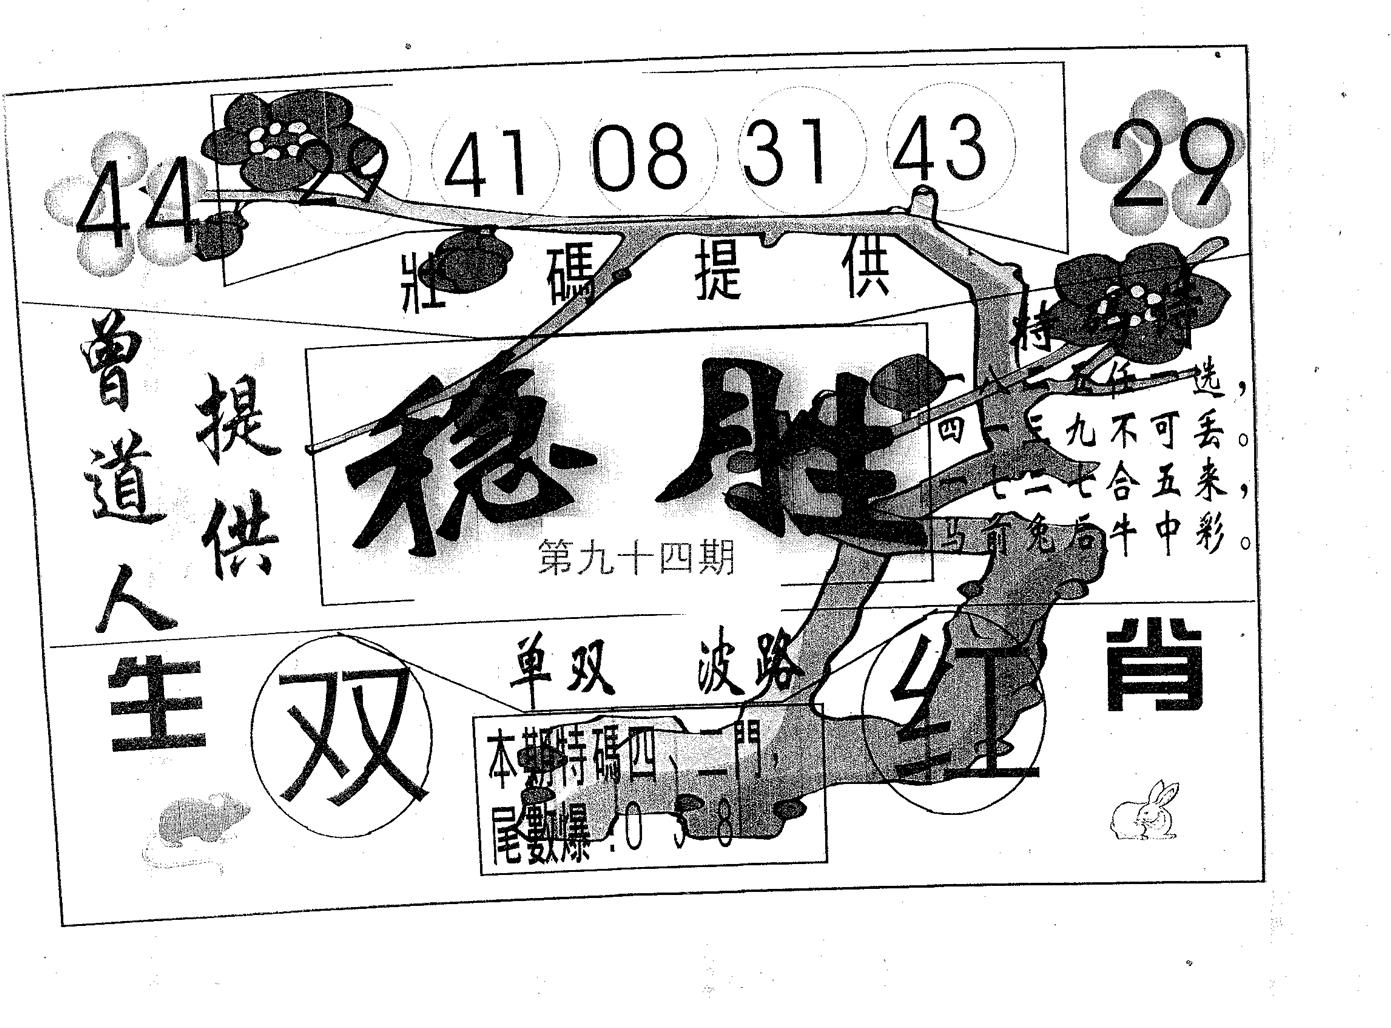 44 29 41 08 31 43 29
壯碼提供
曾道人
提供
稳胜
第九十四期
特碼诗
一八二五任一选，
四一三九不可丢。
一七二七合五来，
马前兔后牛中彩。
生肖
单双 波路
双 红
本期特碼四、二門，
尾數爆:0 8